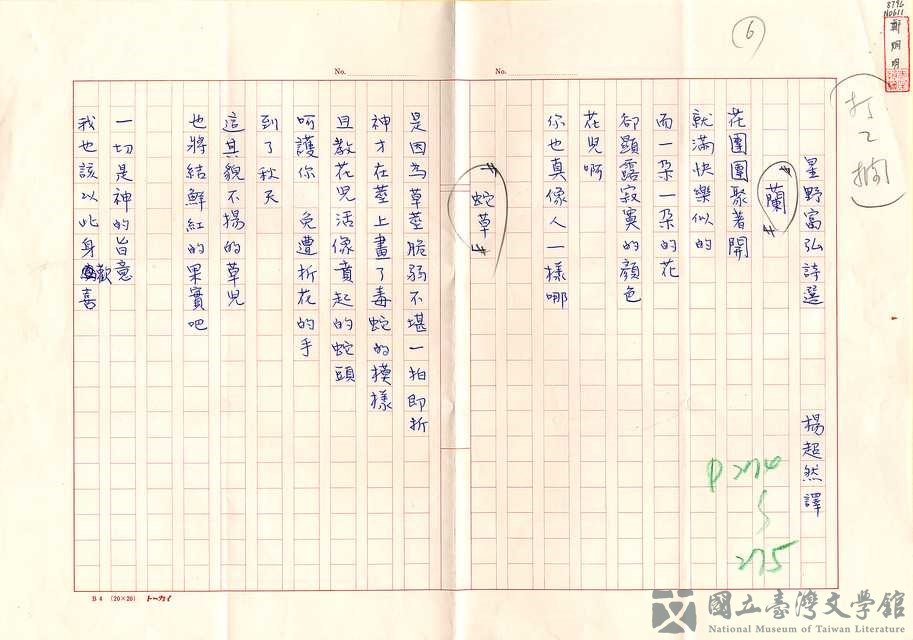 8796
N0611
鄭烱明
6
打乙欄
No.
No.
星野富弘詩選　楊超然譯
蘭
花團團聚著開
就滿快樂似的
而一朵一朵的花
卻顯露寂寞的顏色
花兒啊
你也真像人一樣哪
蛇草
是因為草莖脆弱不堪一拍即折
神才在莖上畫了毒蛇的模樣
且教花兒活像賁起的蛇頭
呵護你　免遭折花的手
到了秋天
這其貌不揚的草兒
也將結鮮紅的果實吧
一切是神的旨意
我也該以此身歡喜
P 274
～
275
B4 (20×20)
國立臺灣文學館
National Museum of Taiwan Literature